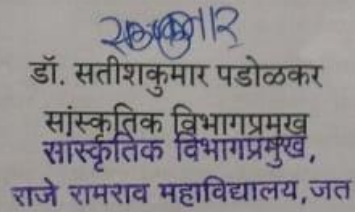 डॉ. सतीशकुमार पडोळकर
सांस्कृतिक विभागप्रमुख
सांस्कृतिक विभागप्रमुख,
राजे रामराव महाविद्यालय,जत